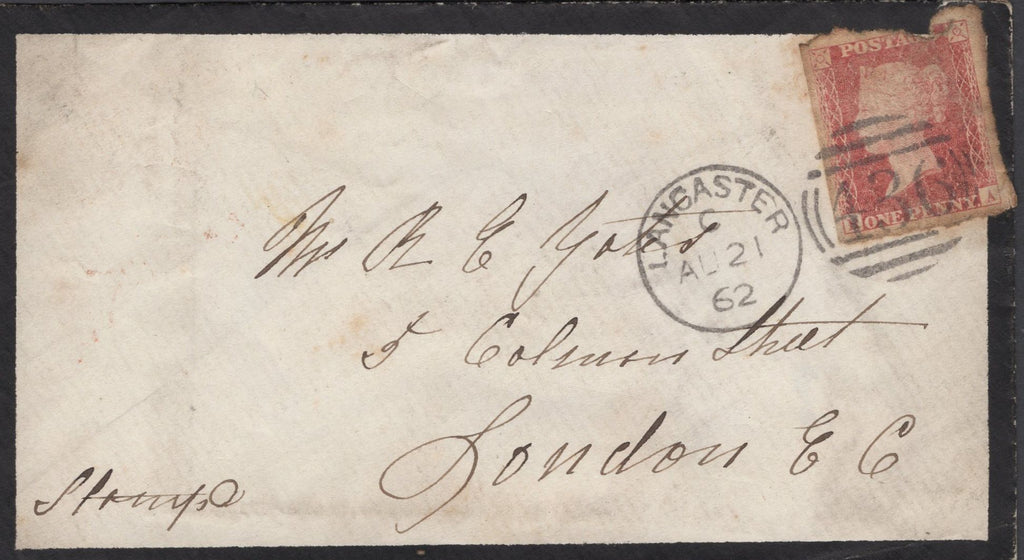 POSTA
ONE PENNY A
436
LANCASTER
C
AU 21
62
Mr R E Yates
5 Colman Street
London E C
Stamps